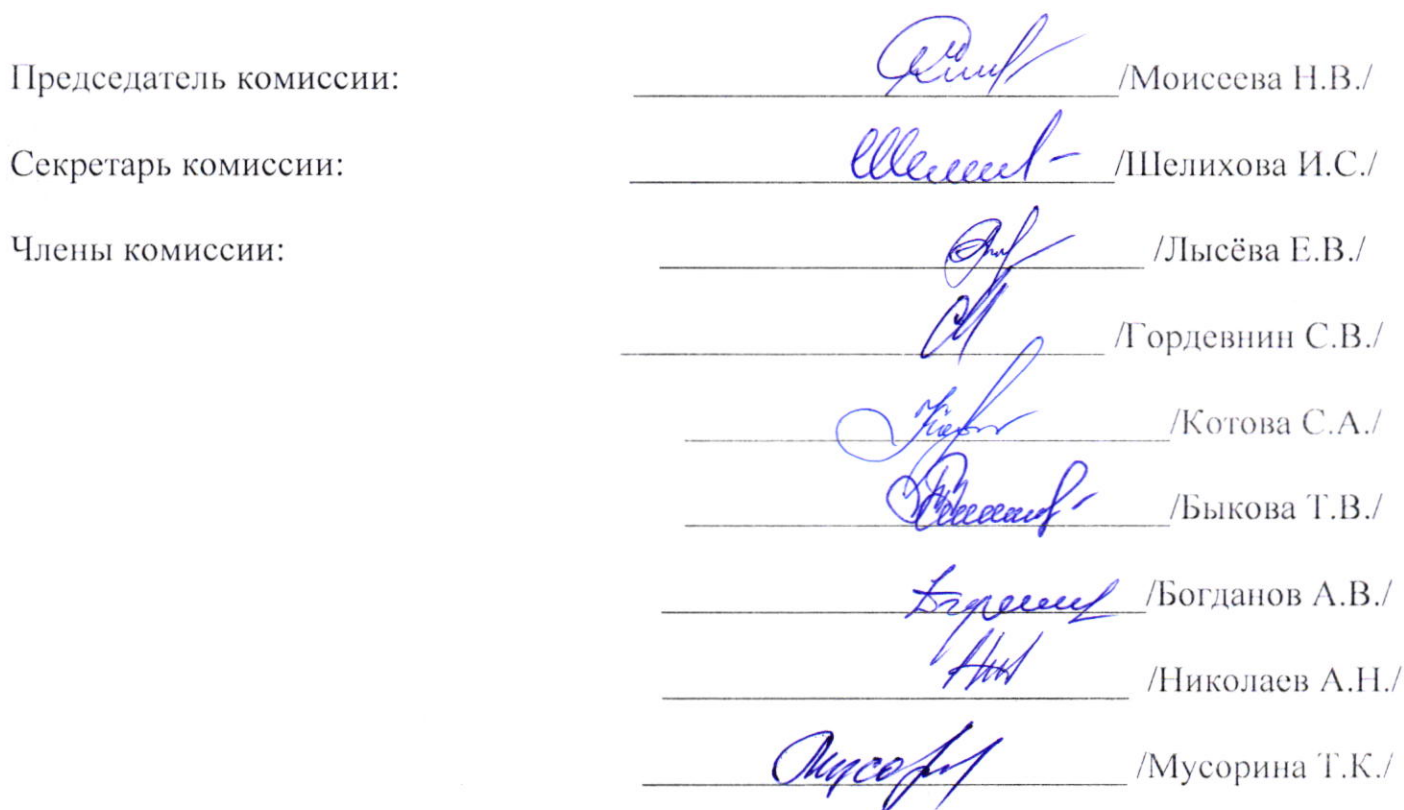 Председатель комиссии: /Моисеева Н.В./
Секретарь комиссии: /Шелихова И.С./
Члены комиссии: /Лысёва Е.В./
/Гордевнин С.В./
/Котова С.А./
/Быкова Т.В./
/Богданов А.В./
/Николаев А.Н./
/Мусорина Т.К./